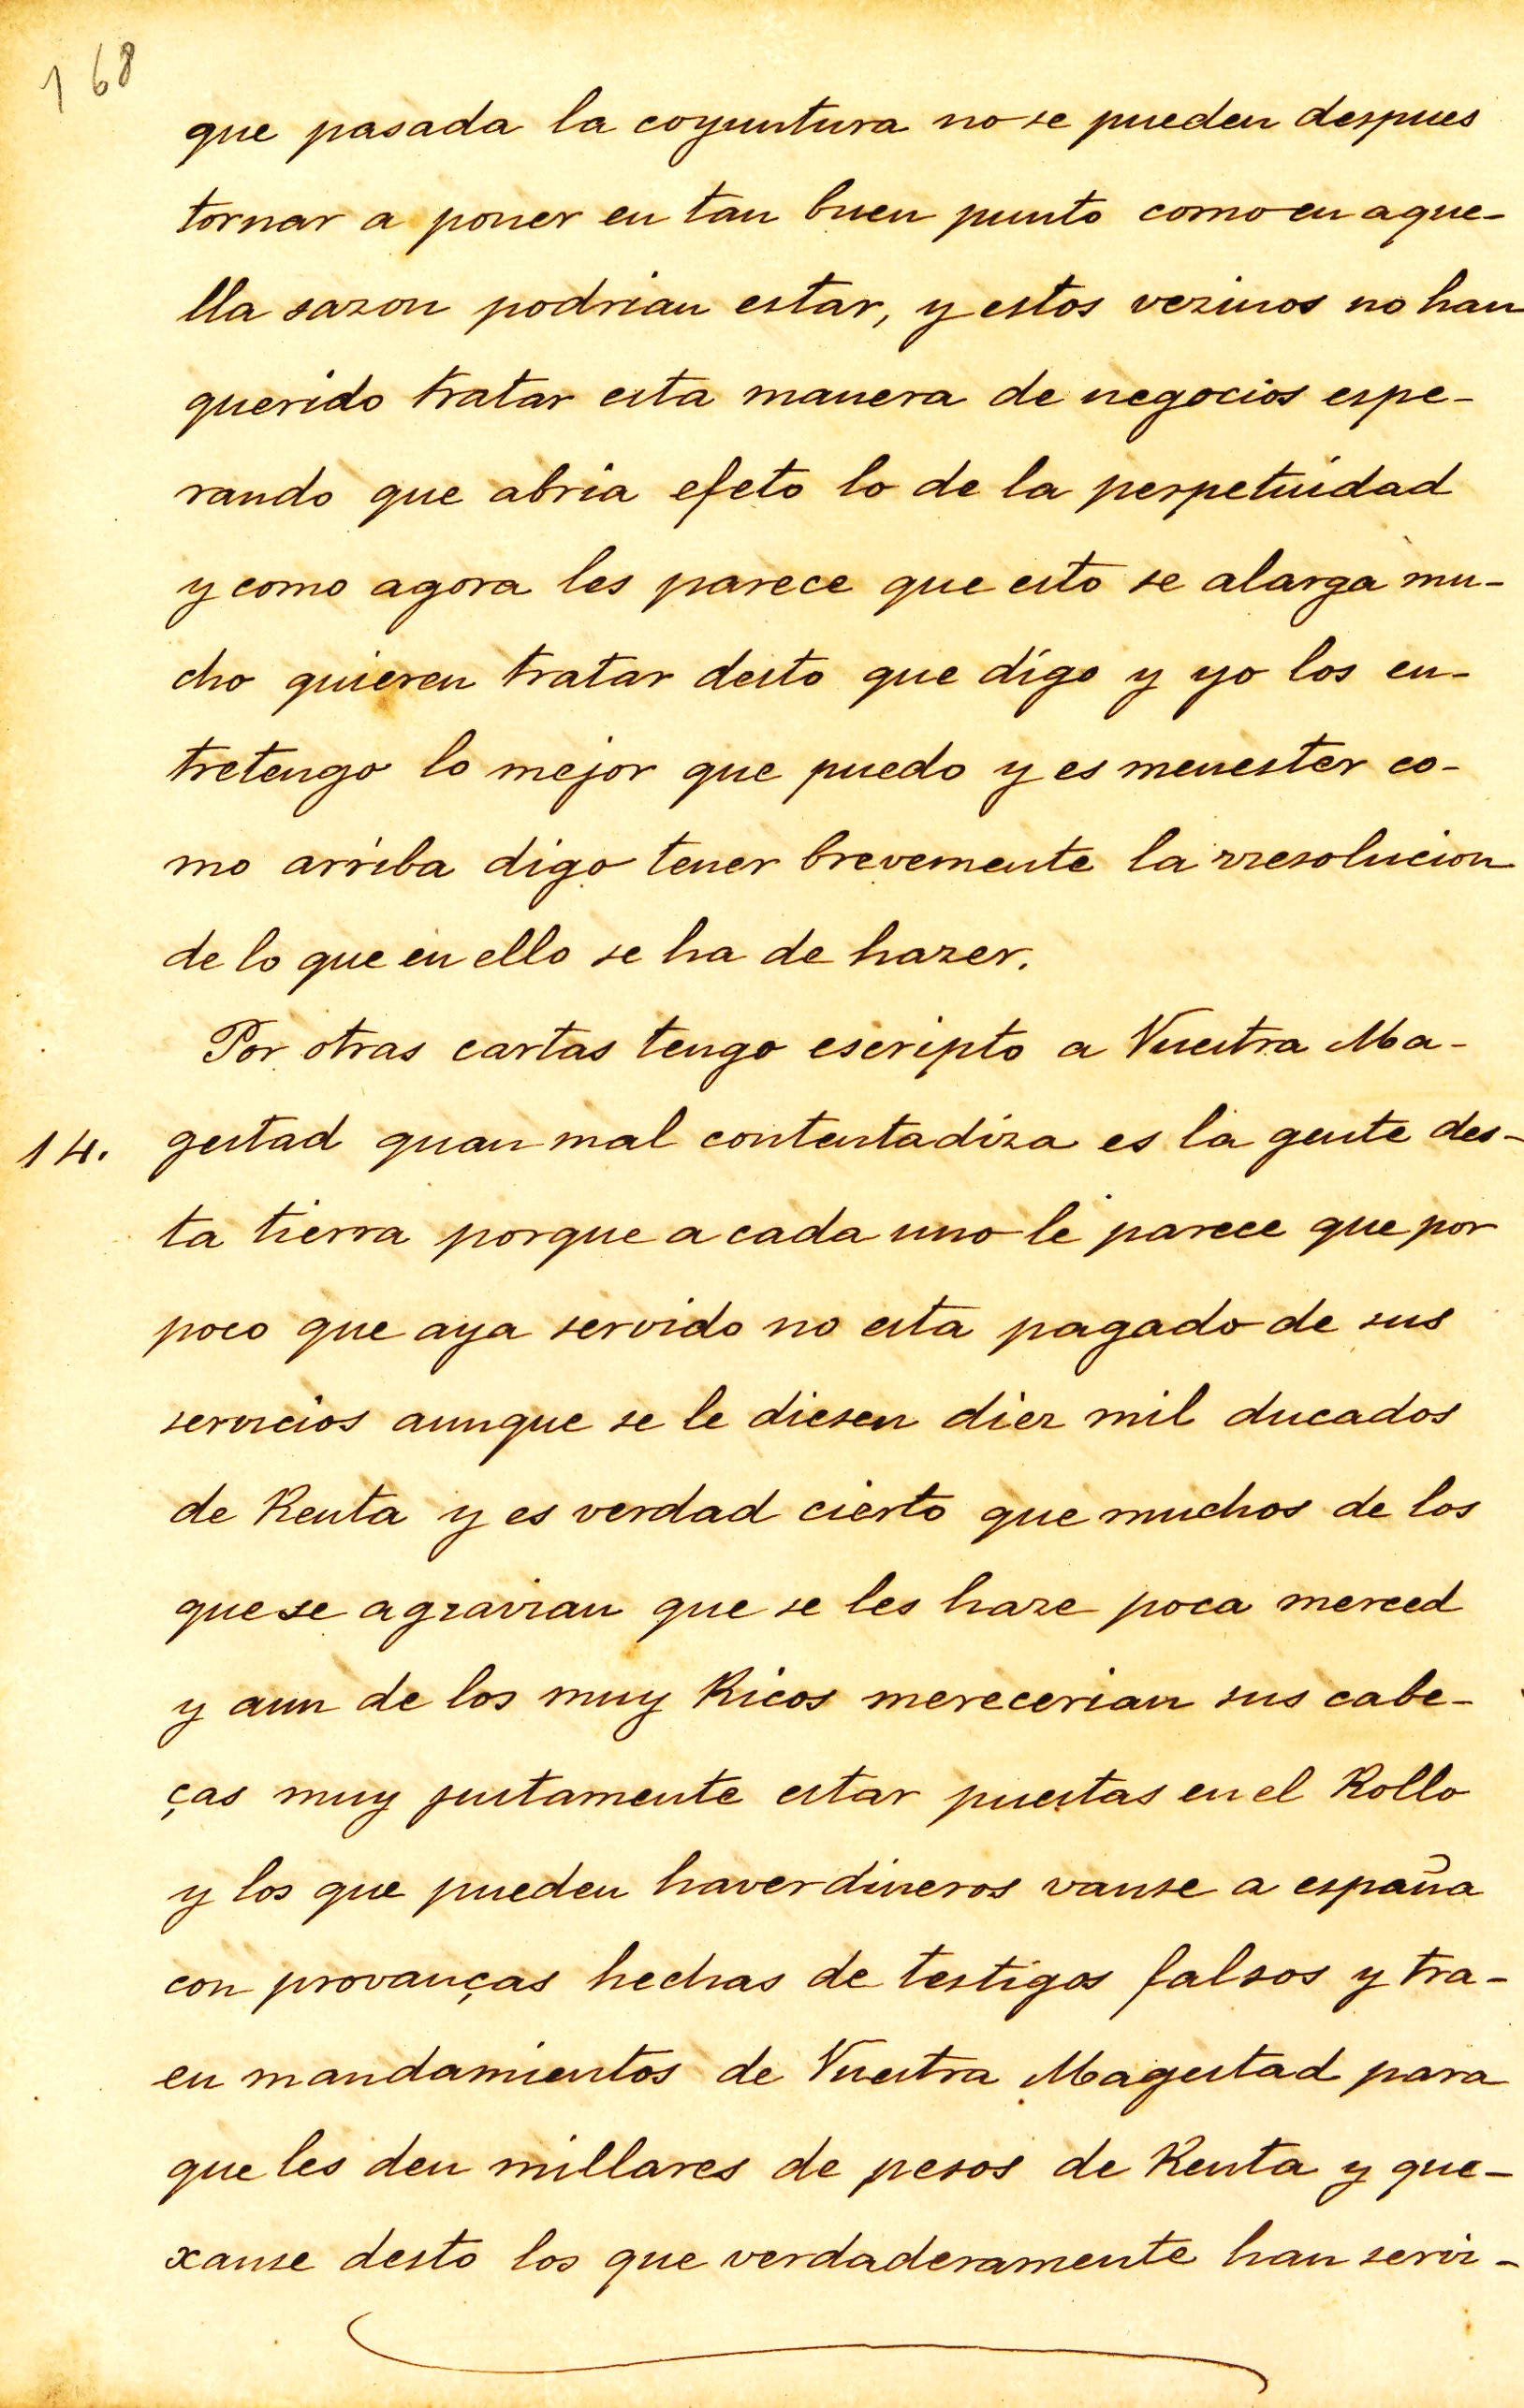 168
que pasada la coyuntura no se pueden despues
tornar a poner en tan buen punto como en aque-
lla sazon podrian estar, y estos vezinos no han
querido tratar esta manera de negocios espe-
rando que abria efeto lo de la perpetuidad
y como agora les parece que esto se alarga mu-
cho quieren tratar desto que digo y yo los en-
tretengo lo mejor que puedo y es menester co-
mo arriba digo tener brevemente la rresolucion
de lo que en ello se ha de hazer.
Por otras cartas tengo escripto a Vuestra Ma-
14. gestad quan mal contentadiza es la gente des-
ta tierra porque a cada uno le parece que por
poco que aya servido no esta pagado de sus
servicios aunque se le diesen diez mil ducados
de Renta y es verdad cierto que muchos de los
que se agravian que se les haze poca merced
y aun de los muy Ricos merecerian sus cabe-
ças muy justamente estar puestas en el Rollo
y los que pueden haver dineros vanse a españa
con provanças hechas de testigos falsos y tra-
en mandamientos de Vuestra Magestad para
que les den millares de pesos de Renta y que-
xanse desto los que verdaderamente han servi-